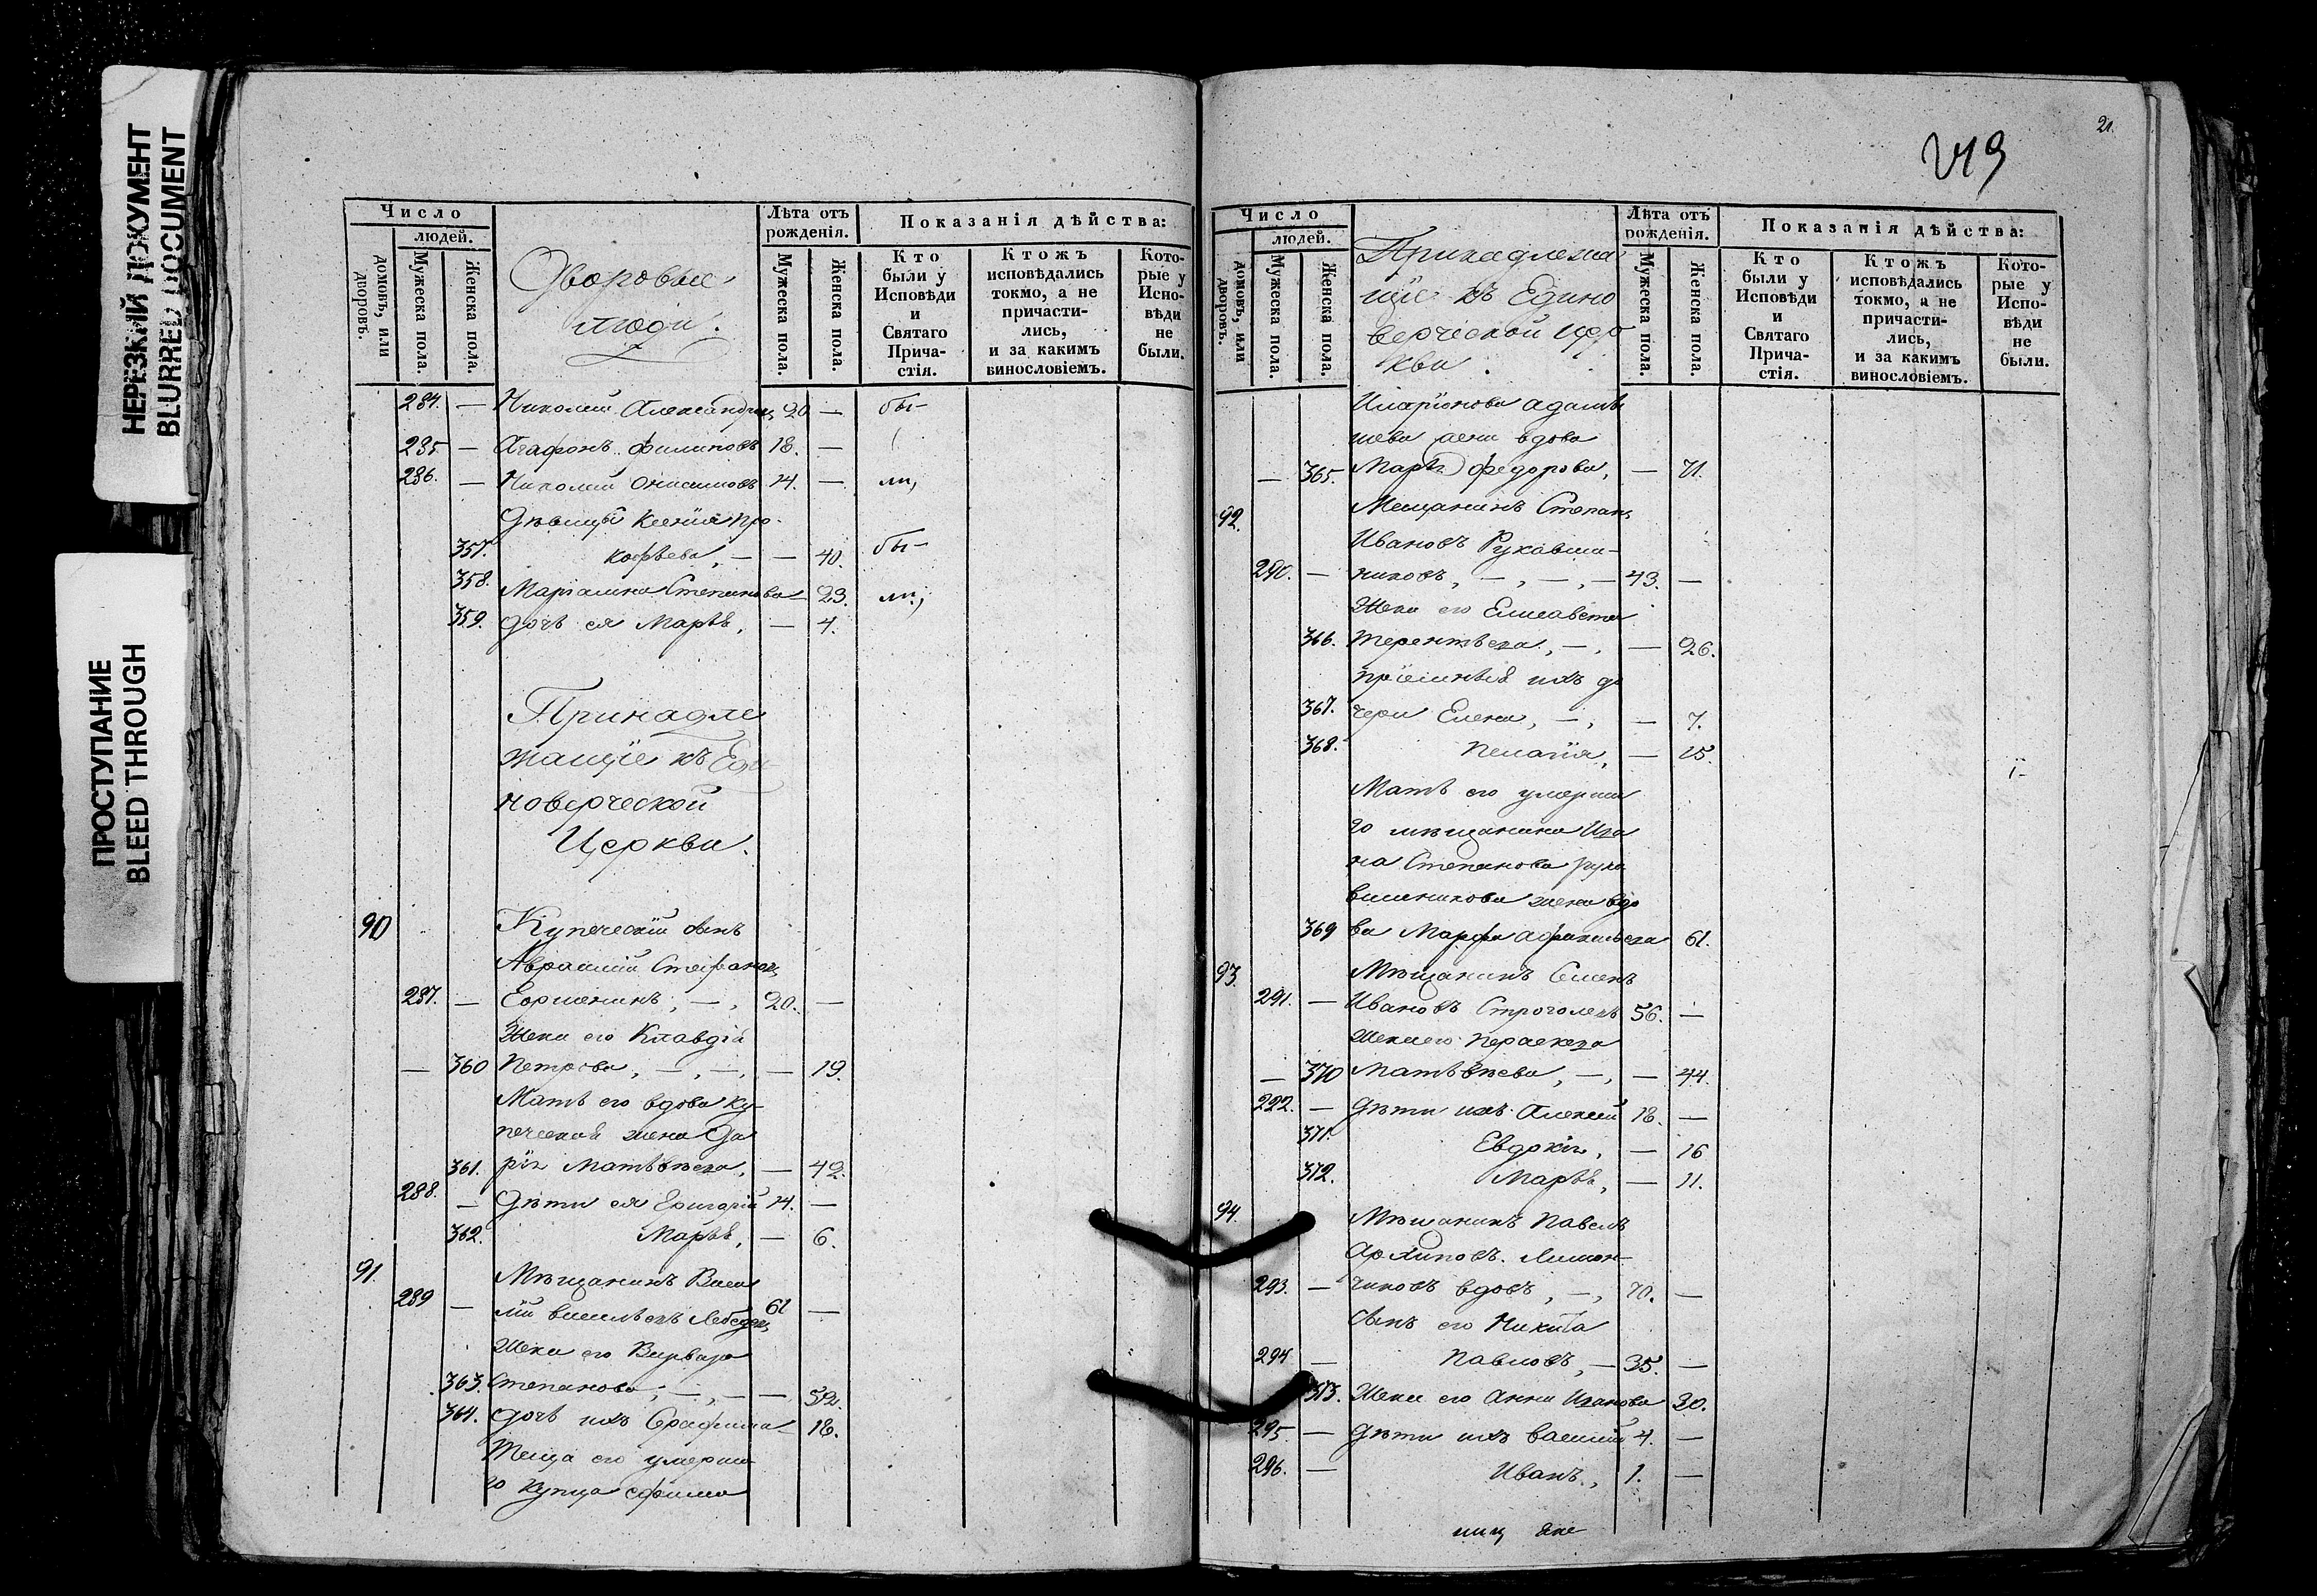 НЕРЕЗКИЙ ДОКУМЕНТ
BLURRED DOCUMENT
ПРОСТУПАНИЕ
BLEED THROUGH
Число
людей.
домовъ, или дворовъ.
Мужеска пола.
Женска пола.
Дворовые
люди.
Лѣта отъ рожденія.
Мужеска пола.
Женска пола.
Показанія дѣйства:
Кто были у Исповѣди и Святаго Прича-стія.
Ктожъ исповѣдались токмо, а не причасти-лись, и за какимъ винословіемъ.
Кото-рые у Испо-вѣди не были.
284. — Николай Александровъ 20 — бы-
285 — Агафонъ Филиповъ 18. —
286. — Николай Онисимовъ 14. — ли,
Дѣвицы Ксенія Про-
357. кофьева, — — 40. бы-
358. Маріамна Степанова — 23. ли,
359. дочь ея Марья, — 4.
Принадле
жащіе къ Еди
новерческой
Церкви.
90 Купеческій сынъ
Авраамій Стефановъ
287. — — , 20. —
Жена его Клавдія
— 360 Петрова, — , — , — 19.
Мать его вдова ку-
печеская жена Да
361. рія Матвѣева, — 42.
288. — Дѣти ея Григорій 14. —
362. Марья, — 6.
91. Мѣщанинъ Васи
289 — лій Васильевъ Лебедевъ 61 —
Жена его Варвара
363. Степанова, — , — — 52.
364. дочь ихъ Серафима — 18.
Теща его умерша
го купца
21.
419
Число
людей.
домовъ, или дворовъ.
Мужеска пола.
Женска пола.
Принадлежа
щіе къ Едино
верческой цер
кви.
Лѣта отъ рожденія.
Мужеска пола.
Женска пола.
Показанія дѣйства:
Кто были у Исповѣди и Святаго Прича-стія.
Ктожъ исповѣдались токмо, а не причасти-лись, и за какимъ винословіемъ.
Кото-рые у Испо-вѣди не были.
Иларіонова Адамы
шева жена вдова
— 365. Марья Федорова, — 71.
92. Мещанинъ Степанъ
Ивановъ Рукавиш-
290. — никовъ, — , — , — 43. —
Жена его Елисавета
366. Терентьева, — , — 26.
пріемныя ихъ до
367. чери Елена, — , — 7.
368. Пелагія, — 15.
Мать его умерша
го мѣщанина Ива
на Степанова Рука
вишникова жена вдо
369 ва Марфа 61.
93. Мѣщанинъ Семенъ
291. — Ивановъ 56. —
Жена его Параскева
— 370 Матвѣева, — , — 44.
292. — Дѣти ихъ Алексей 18. —
371. Евдокія, — 16
372. Марья, — 11.
94. Мѣщанинъ Павелъ
Архиповъ Лиман-
293. — чиковъ вдовъ, — , 70. —
Сынъ его Никита
294 — Павловъ, — 35. —
373. Жена его Анна Иванова 30.
295. — Дѣти ихъ Василій 4. —
296. — Иванъ, 1. —